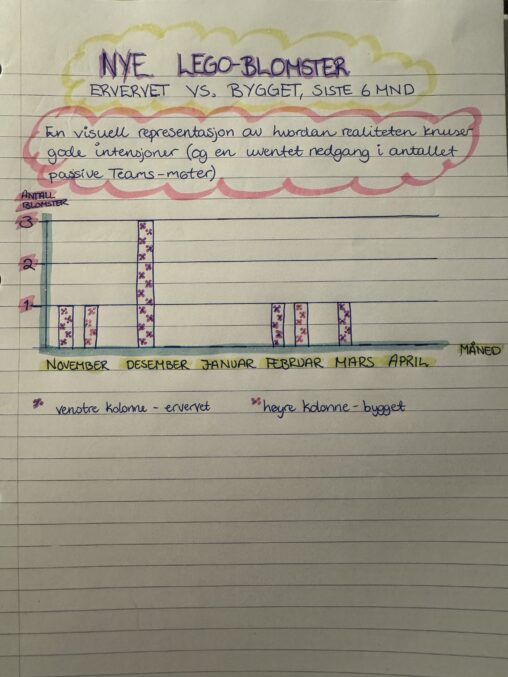 NYE LEGO-BLOMSTER
ERVERVET VS. BYGGET, SISTE 6 MND
En visuell representasjon av hvordan realiteten knuser
gode intensjoner (og en uventet nedgang i antallet
passive Teams-møter)
ANTALL
BLOMSTER
3
2
1
MÅNED
NOVEMBER DESEMBER JANUAR FEBRUAR MARS APRIL
venstre kolonne - ervervet høyre kolonne - bygget